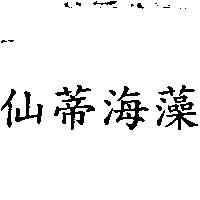 仙蒂海藻